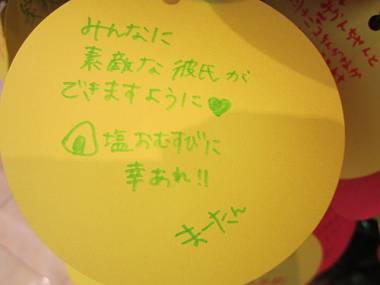 みんなに
素敵な彼氏が
できますように♥
塩おむすびに
幸あれ!!
まーたん